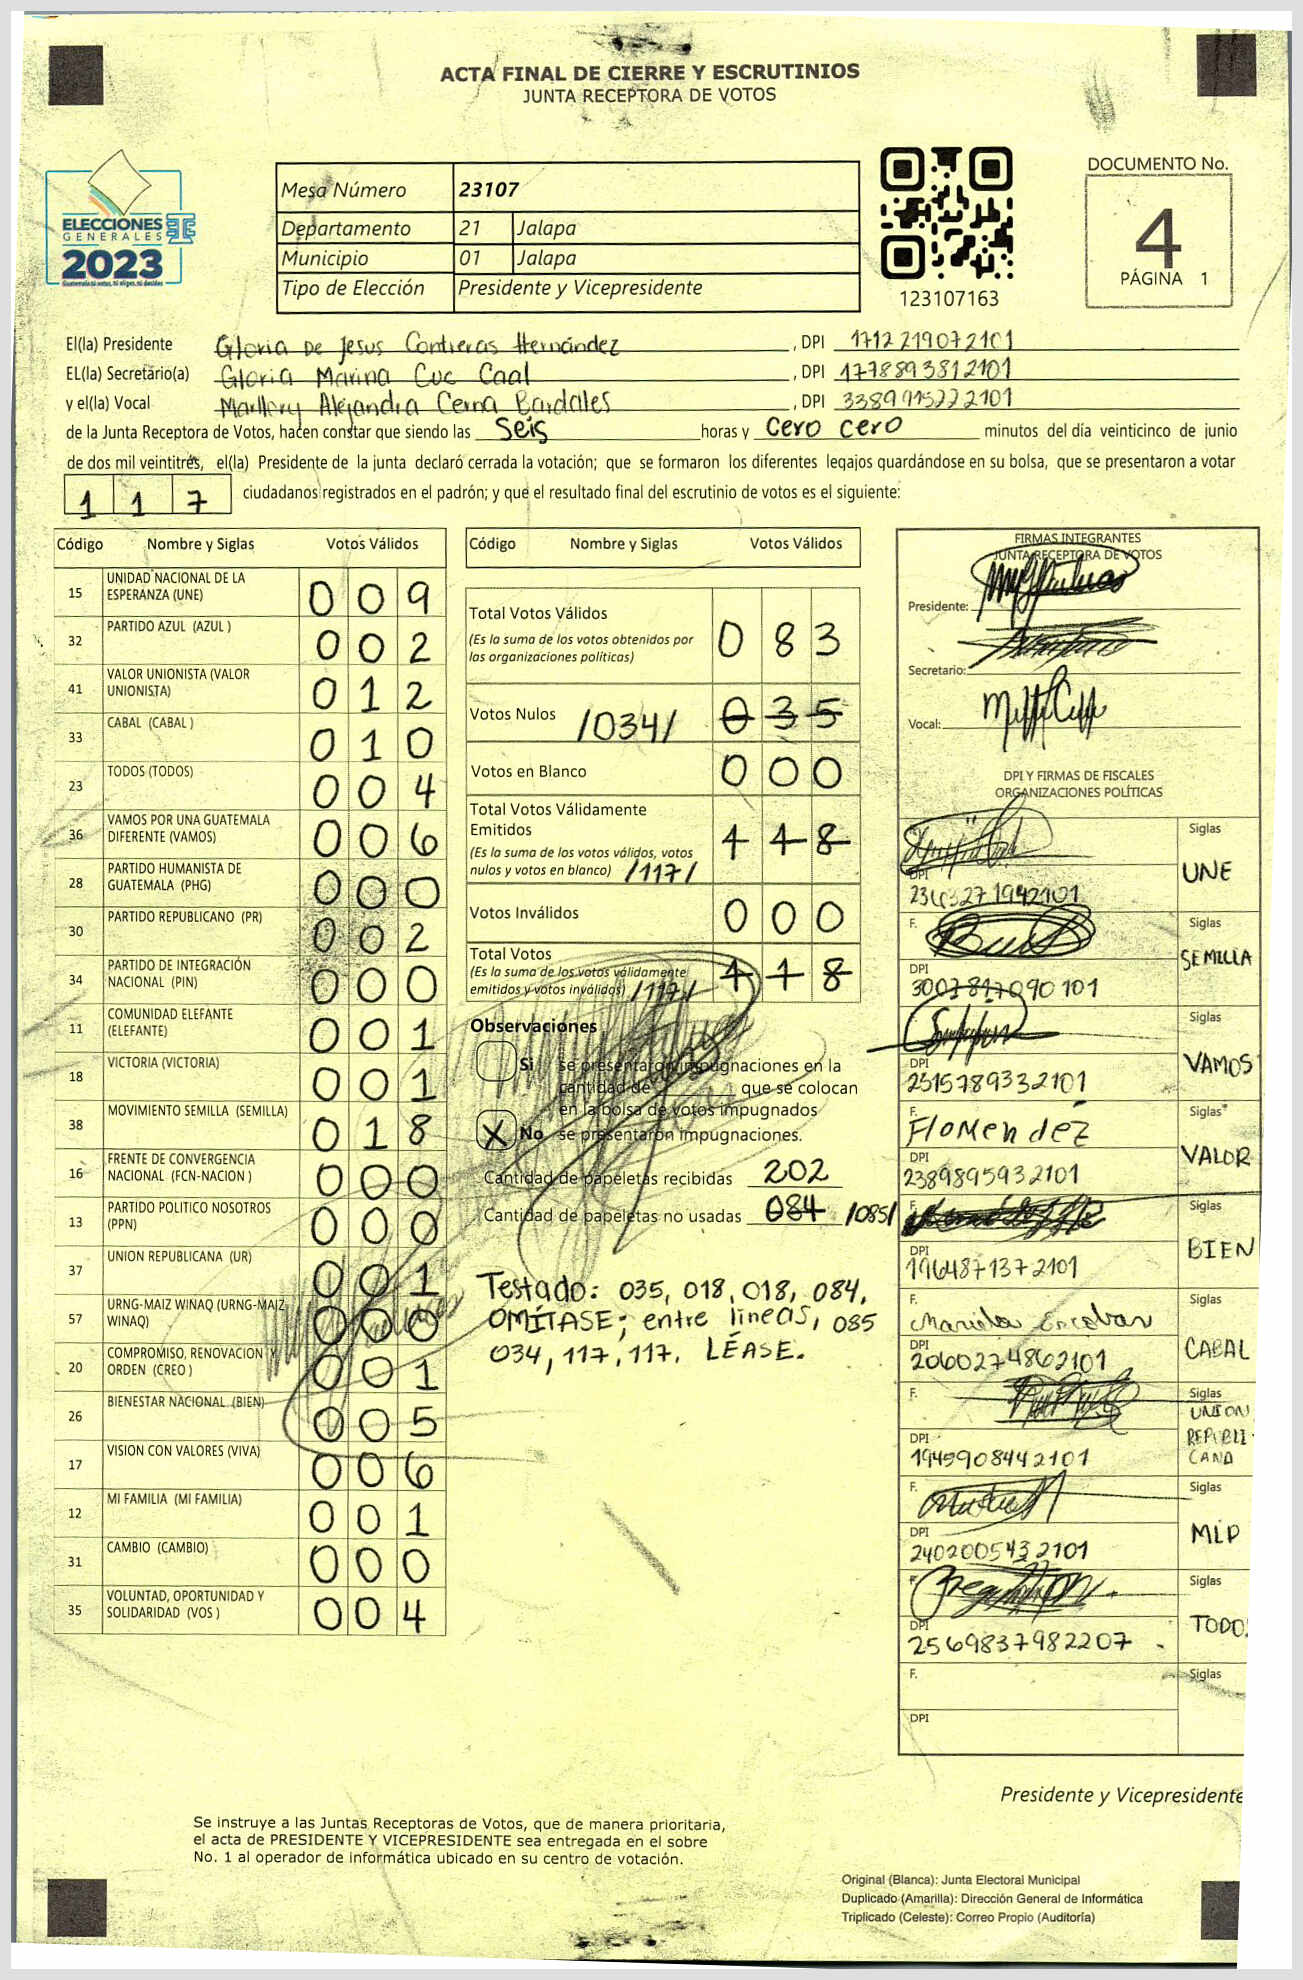 ACTA FINAL DE CIERRE Y ESCRUTINIOS
JUNTA RECEPTORA DE VOTOS
ELECCIONES
GENERALES
2023
Guatemala tú votas, tú eliges, tú decides
Mesa Número 23107
Departamento 21 Jalapa
Municipio 01 Jalapa
Tipo de Elección Presidente y Vicepresidente
123107163
DOCUMENTO No.
4
PÁGINA 1
El(la) Presidente Gloria De Jesus Contreras Hernández, DPI 1712219072101
EL(la) Secretario(a) Gloria Marina Cuc Caal, DPI 1778893812101
y el(la) Vocal Marllory Alejandra Cerna Bardales, DPI 3389915222101
de la Junta Receptora de Votos, hacen constar que siendo las Seis horas y cero cero minutos del día veinticinco de junio
de dos mil veintitrés, el(la) Presidente de la junta declaró cerrada la votación; que se formaron los diferentes legajos guardándose en su bolsa, que se presentaron a votar
1 1 7 ciudadanos registrados en el padrón; y que el resultado final del escrutinio de votos es el siguiente:
Código Nombre y Siglas Votos Válidos
15 UNIDAD NACIONAL DE LA ESPERANZA (UNE) 0 0 9
32 PARTIDO AZUL (AZUL ) 0 0 2
41 VALOR UNIONISTA (VALOR UNIONISTA) 0 1 2
33 CABAL (CABAL ) 0 1 0
23 TODOS (TODOS) 0 0 4
36 VAMOS POR UNA GUATEMALA DIFERENTE (VAMOS) 0 0 6
28 PARTIDO HUMANISTA DE GUATEMALA (PHG) 0 0 0
30 PARTIDO REPUBLICANO (PR) 0 0 2
34 PARTIDO DE INTEGRACIÓN NACIONAL (PIN) 0 0 0
11 COMUNIDAD ELEFANTE (ELEFANTE) 0 0 1
18 VICTORIA (VICTORIA) 0 0 1
38 MOVIMIENTO SEMILLA (SEMILLA) 0 1 8
16 FRENTE DE CONVERGENCIA NACIONAL (FCN-NACION ) 0 0 0
13 PARTIDO POLITICO NOSOTROS (PPN) 0 0 0
37 UNION REPUBLICANA (UR) 0 0 1
57 URNG-MAIZ WINAQ (URNG-MAIZ WINAQ) 0 0 0
20 COMPROMISO, RENOVACION Y ORDEN (CREO ) 0 0 1
26 BIENESTAR NACIONAL (BIEN) 0 0 5
17 VISION CON VALORES (VIVA) 0 0 6
12 MI FAMILIA (MI FAMILIA) 0 0 1
31 CAMBIO (CAMBIO) 0 0 0
35 VOLUNTAD, OPORTUNIDAD Y SOLIDARIDAD (VOS ) 0 0 4
Código Nombre y Siglas Votos Válidos
Total Votos Válidos 0 8 3
(Es la suma de los votos obtenidos por
las organizaciones políticas)
Votos Nulos /034/ 0 3 5
Votos en Blanco 0 0 0
Total Votos Válidamente
Emitidos 1 1 8
(Es la suma de los votos válidos, votos
nulos y votos en blanco) /117/
Votos Inválidos 0 0 0
Total Votos
(Es la suma de los votos válidamente 1 1 8
emitidos y votos inválidos) /117/
Observaciones
Si se presentaron impugnaciones en la
cantidad de que se colocan
en la bolsa de votos impugnados
X No se presentaron impugnaciones.
Cantidad de papeletas recibidas 202
Cantidad de papeletas no usadas 084 /085/
Testado: 035, 018, 018, 084,
OMÍTASE; entre lineas, 085
034, 117, 117. LÉASE.
FIRMAS INTEGRANTES
JUNTA RECEPTORA DE VOTOS
Presidente:
Secretario:
Vocal:
DPI Y FIRMAS DE FISCALES
ORGANIZACIONES POLÍTICAS
Siglas UNE
DPI
F. Siglas SEMILLA
DPI
Siglas VAMOS
DPI 2515789332101
F. FloMendez Siglas VALOR
DPI 2389895932101
F. Siglas BIEN
DPI 1964871372101
F. Mariela Escobar Siglas CABAL
DPI 2060274862101
F. Siglas UNION REPUBLICANA
DPI 1945908442101
F. Siglas MLP
DPI 2402005432101
F. Siglas TODO
DPI 2569837982207
F. Siglas
DPI
Presidente y Vicepresidente
Se instruye a las Juntas Receptoras de Votos, que de manera prioritaria,
el acta de PRESIDENTE Y VICEPRESIDENTE sea entregada en el sobre
No. 1 al operador de informática ubicado en su centro de votación.
Original (Blanca): Junta Electoral Municipal
Duplicado (Amarilla): Dirección General de Informática
Triplicado (Celeste): Correo Propio (Auditoría)